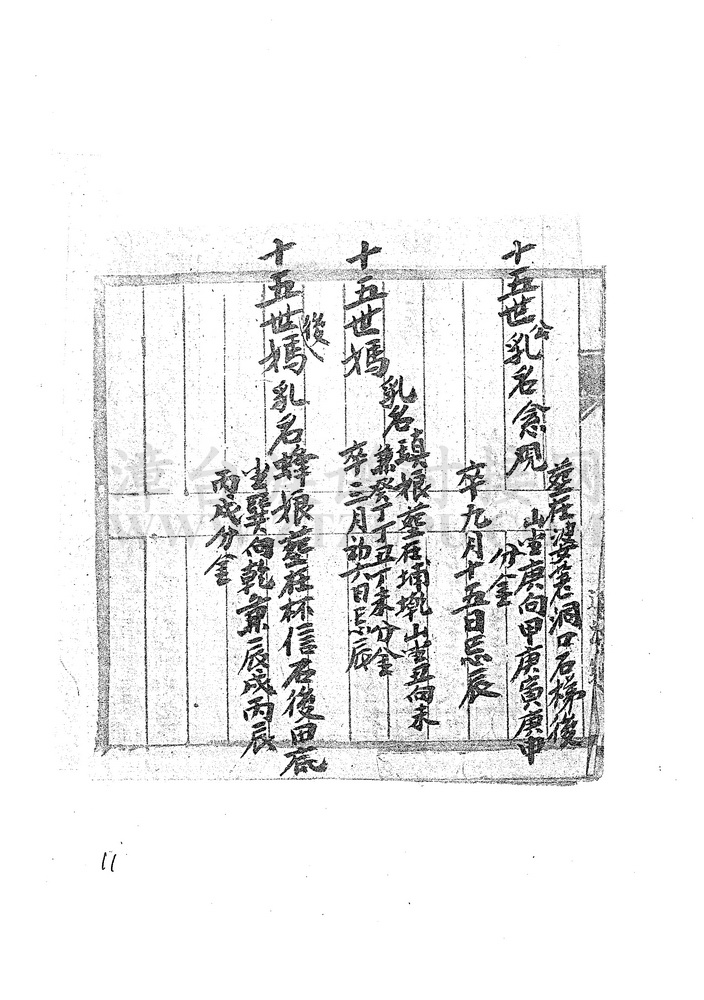 十五世公乳名念观
葬在婆老洞口石梯後
山坐庚向甲庚寅庚申
分金
卒九月十五日忌辰
十五世媽
乳名鎮娘葬在埔墘山坐丑向未
兼癸丁丁丑丁未分金
卒三月初六日忌辰
十五世媽後乳名蜂娘葬在杯信石後田底
坐巽向乾兼辰戌丙辰
丙戌分金
11